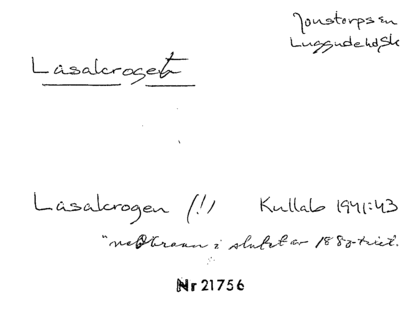 Jonstorps sn
Luggude hd, Sk
Lasakroget
Lasakrogen (!) Kullab 1941:43
"nedbrann i slutet av 1880-talet.
Nr 21756